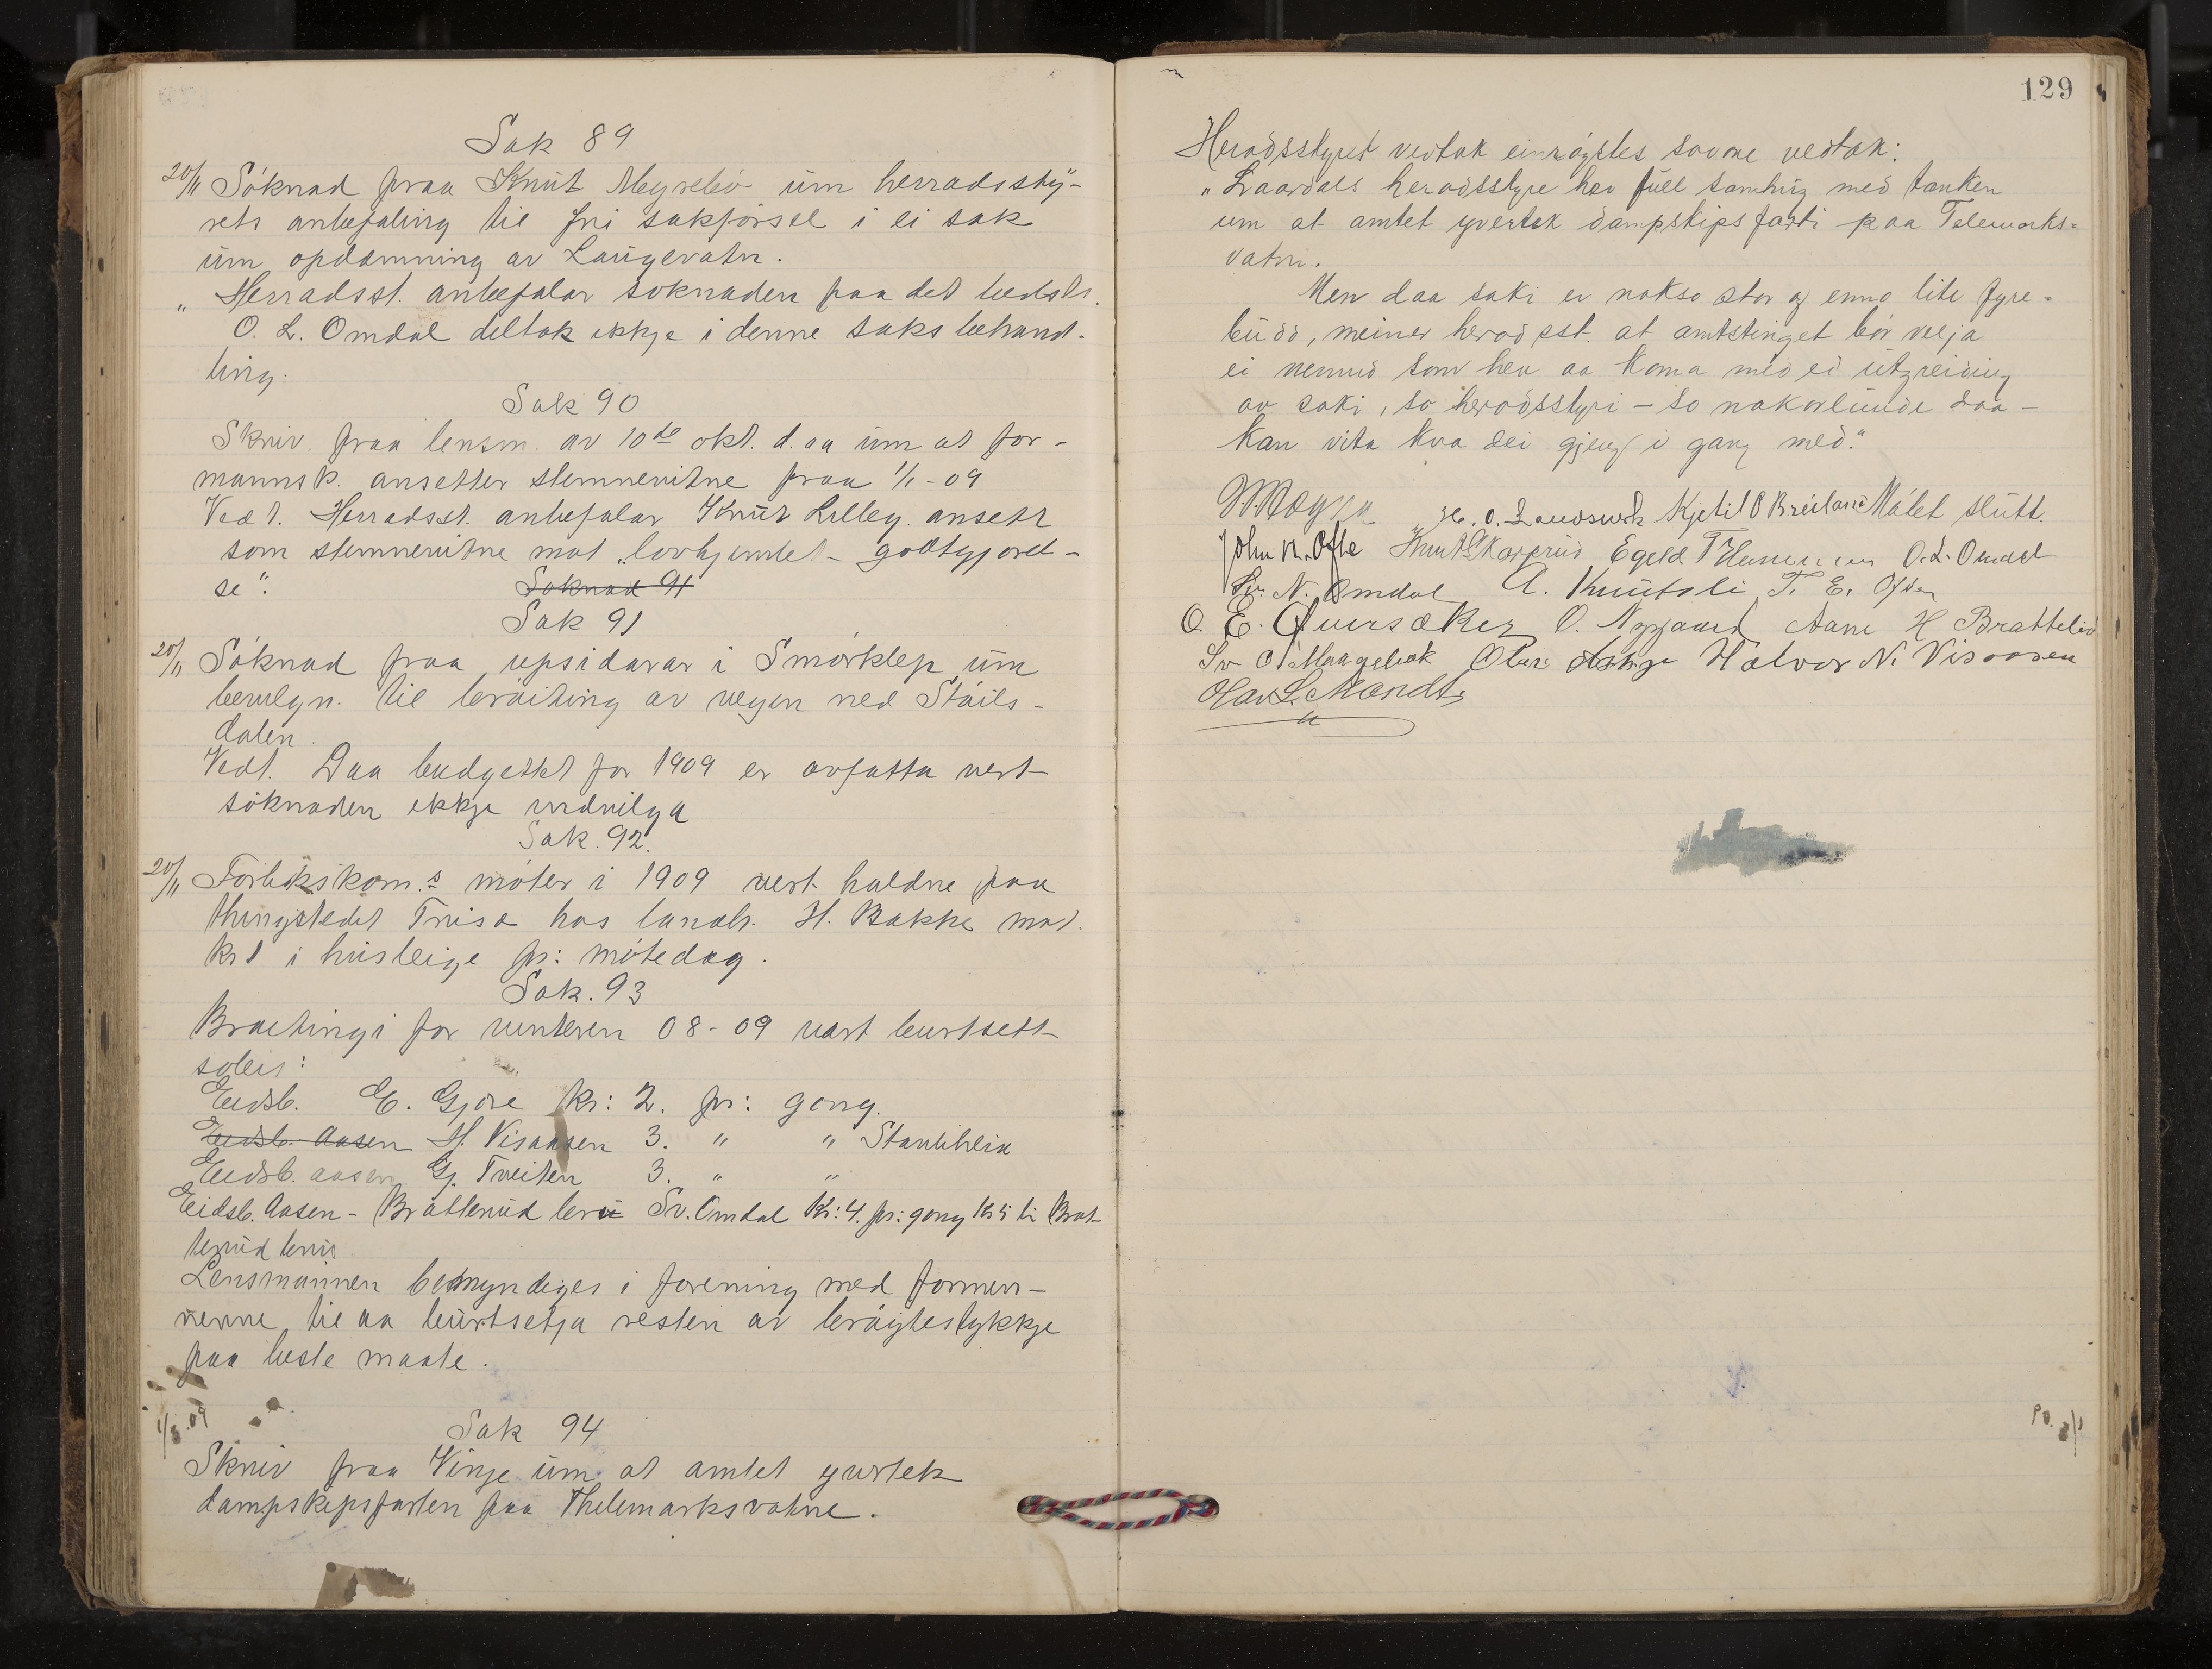 Sak 89
20/11 Söknad fraa Knut Meyrelid um herradssty-
rets anbefaling til fri sakförsel i ei sak
um opdæmning av Laugevatn.
„Herradsst. anbefalar söknaden paa det bedste.
O. L. Omdal deltok ikkje i denne saks behand-
ling.
Sak 90
Skriv fraa lensm. av 10de okt. d. aa um at for-
mannsk. ansetter stemnevitne fraa 1/1-09
Vedt. Herradsst. anbefalar Knut Lilleg. ansett
som stemnevitne mot „lovhjemlet godtgjorel-
se“. Soknad 91
Sak 91
20/11 Söknad fraa upsidarar i Smörklep um
bevilgn. til braiting av vegen ned Stäils-
dalen.
Vedt. Daa budgettet for 1909 er avfatta vert
söknaden ikkje indvilga
Sak. 92.
20/11 Forlikskom.s möter i 1909 vert haldne paa
thingstedet Triset hos landh. H. Bakke mot.
kr 1 i husleige pr: mötedag.
Sak. 93
Bröitingi for vinteren 08-09 vart burtsett
soleis:
Eidsb. E. Gjöse kr: 2. pr: gong.
Eidsb. Aasen H. Visaasen 3. " "
Eidsb. aasen Gj. Tveiten 3. " "
Eidsb. Aasen - Bratterud bru Sv. Omdal Kr: 4. pr: gong Kr 5 ti Brat-
terud bru
Lensmannen bemyndiges i forening med formen-
nenne til aa burtsetja resten av bröytestykkje
paa beste maate.
1/3.09
Sak 94
Skriv fraa Vinje um at amtet yvertek
dampskipsfarten paa Thelemarksvatne.
129
Heradsstyret vedtok einröystes sovore vedtak:
„Laardals heradsstyre hev full samhug med tanken
um at amtet yvertek dampskipsfarti paa Telemarks-
vatni.
Men daa saki er nokso stor og enno lite fyre-
budd, meiner heradsst. at amtstinget bör velja
ei nemnd som hev aa koma med ei utgreiding
av saki, so heradsstyri - so nokorlunde daa -
kan vita kva dei gjeng i gang med.“
H. O. Landsverk Kjetil O Breiland Mötet slutt.
John K. Ofte Knut Skarprud Egeld T O. L. Omdal
Sv. N. Omdal A. Knutsli T. E. Ofte
O. E. Qversaker O. Nygaard Aani H Brattelid
Sv O Maageback Olav Askje Halvor N. Visaasen
Olav L. Mandt